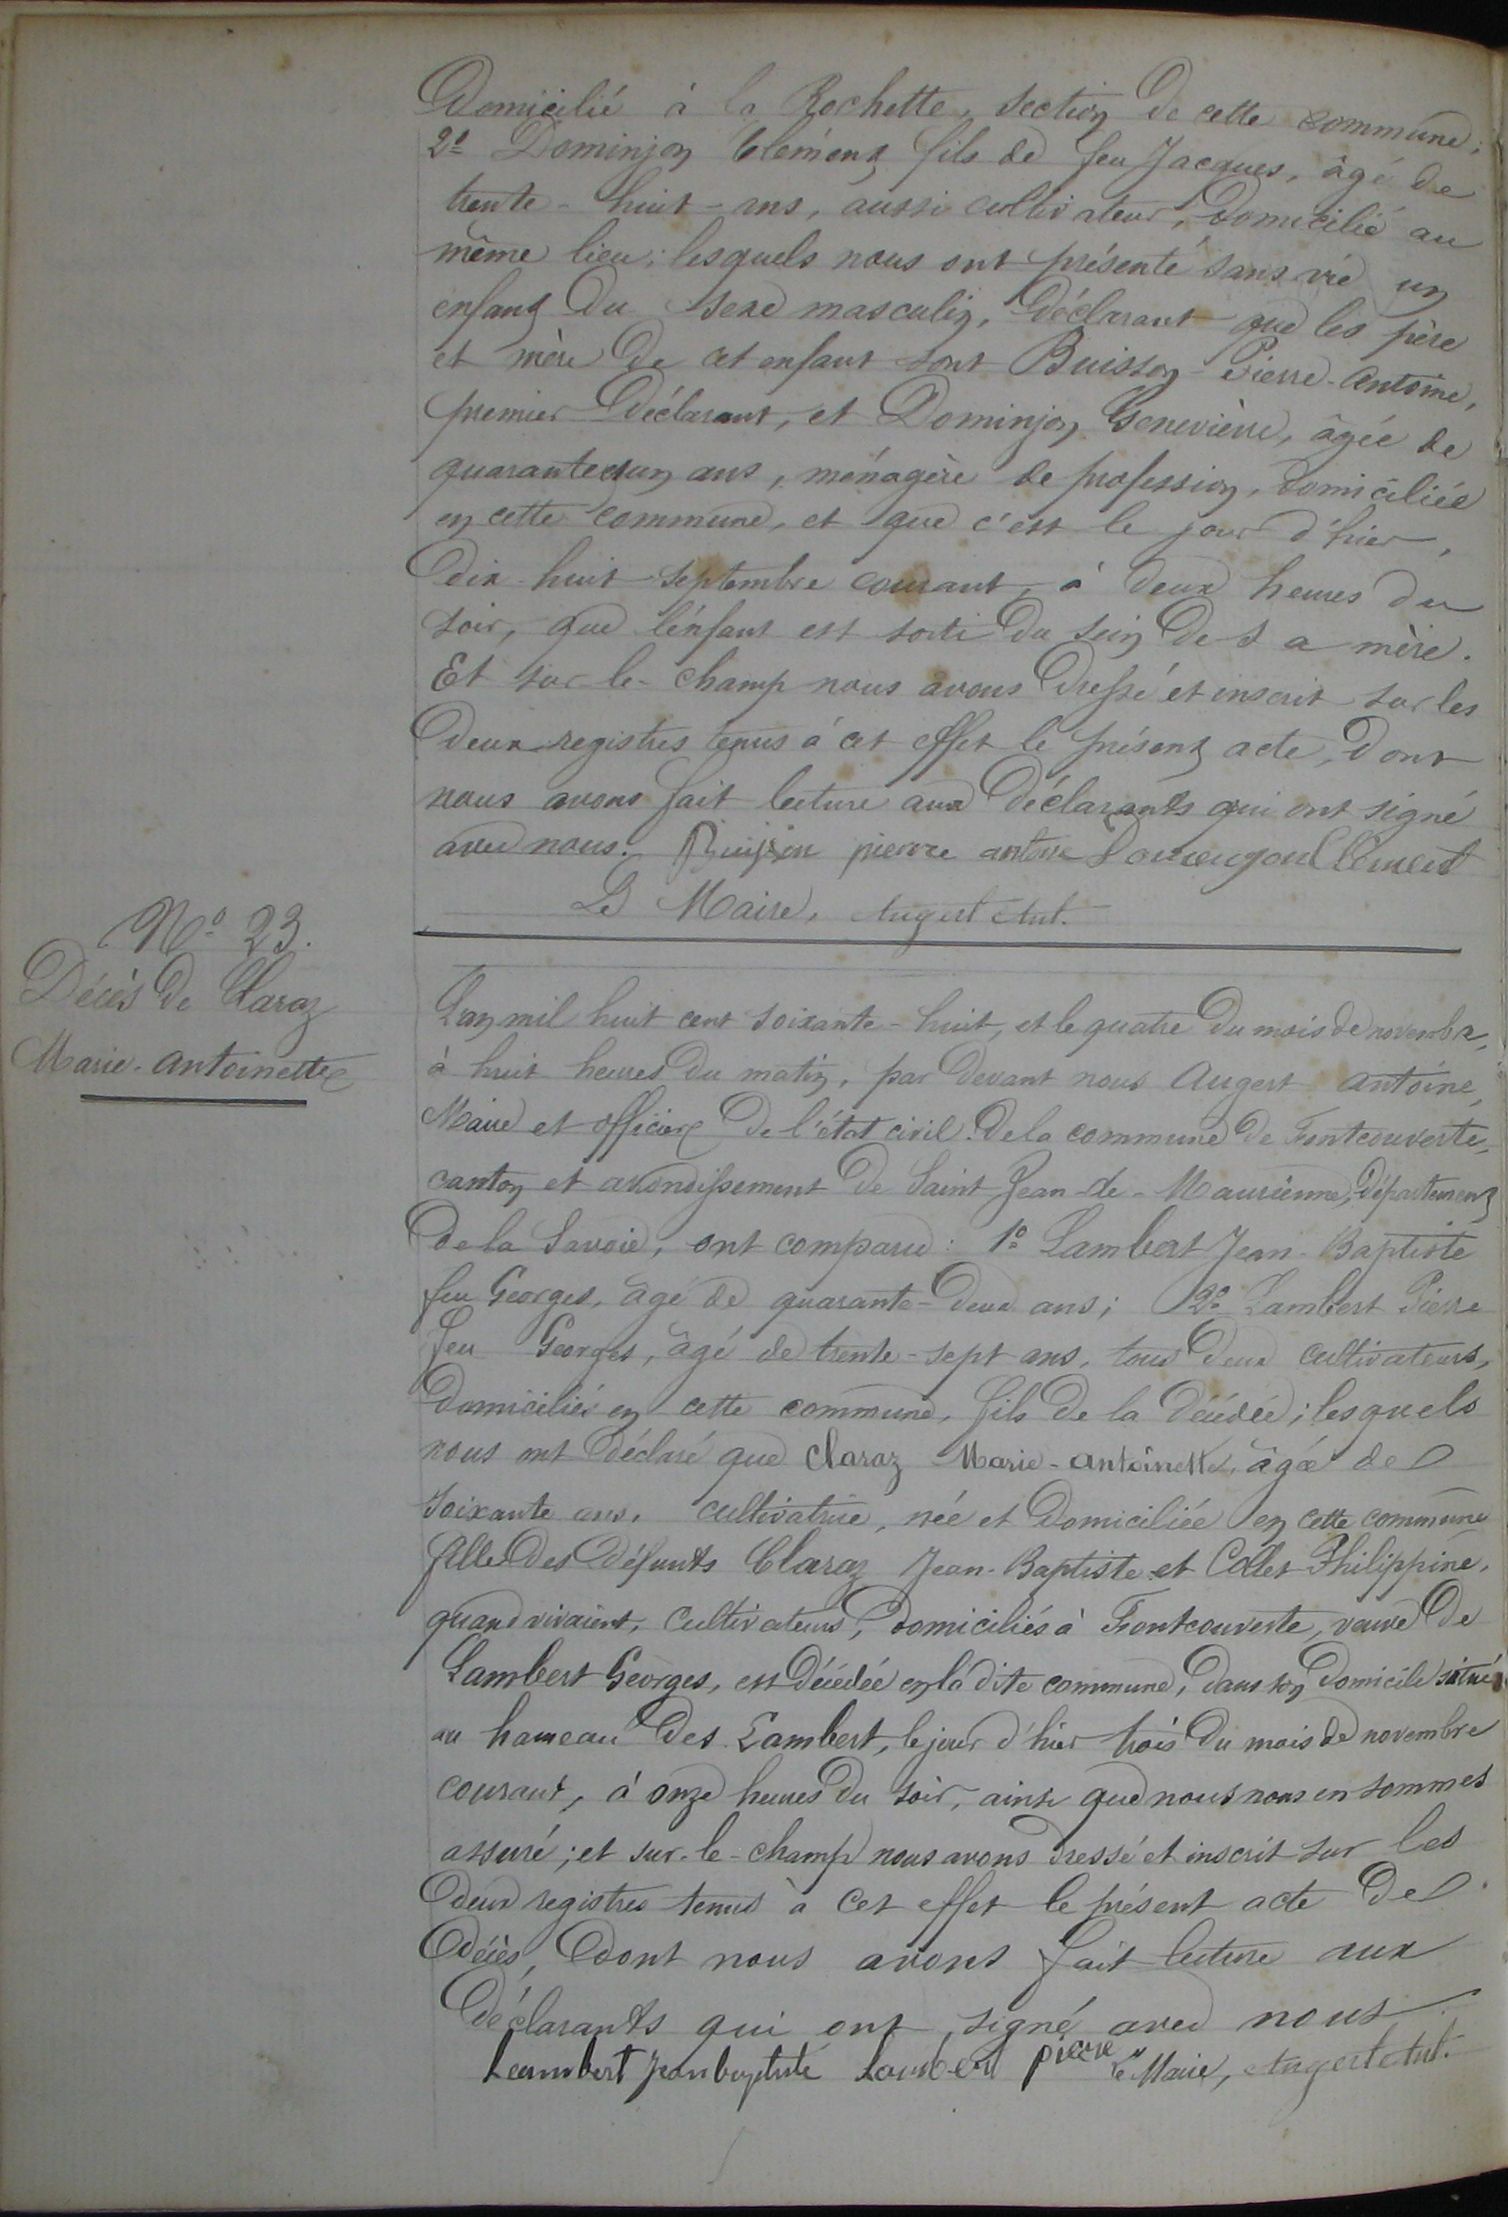 Domicilié à la Rochette, section de cette commune;
2º Dominjon Clément fils de feu Jacques, âgé de
trente-huit-ans, aussi cultivateur, domicilié au
même lieu; lesquels nous ont présenté sans vie un
enfant du sexe masculin, déclarant que les père
et mère de cet enfant sont Buisson Pierre-Antoine,
premier déclarant, et Dominjon Geneviève, âgée de
quarante et un ans, ménagère de profession, domiciliée
en cette commune, et que c'est le jour d'hier,
dix-huit septembre courant, à deux heures du
soir, que l'enfant est sorti du sein de sa mère.
Et sur-le-champ nous avons dressé et inscrit sur les
deux registres tenus à cet effet le présent acte, dont
nous avons fait lecture aux déclarants qui ont signé
avec nous. Buisson pierre antoine Domengon Clément
Le Maire, Augert Ant.
Nº 23.
Décès de Claraz
Marie-Antoinette
L'an mil huit cent soixante-huit, et le quatre du mois de novembre,
à huit heures du matin, par devant nous Augert Antoine,
Maire et officier de l'état civil de la commune de Fontcouverte,
canton et arrondissement de Saint-Jean-de-Maurienne, département
de la Savoie, ont comparu: 1º Lambert Jean-Baptiste
feu Georges, âgé de quarante-deux ans; 2º Lambert Pierre
feu Georges, âgé de trente-sept ans, tous deux cultivateurs,
domiciliés en cette commune, fils de la décédée; lesquels
nous ont déclaré que Claraz Marie-Antoinette, âgée de
soixante ans, cultivatrice, née et domiciliée en cette commune
fille des défunts Claraz Jean-Baptiste et Collet Philippine,
quand vivaient, cultivateurs, domiciliés à Fontcouverte, veuve de
Lambert Georges, est décédée en la dite commune, dans son domicile situé
au hameau des Lambert, le jour d'hier trois du mois de novembre
courant, à onze heures du soir, ainsi que nous nous en sommes
assuré; et sur-le-champ nous avons dressé et inscrit sur les
deux registres tenus à cet effet le présent acte de
décès, dont nous avons fait lecture aux
déclarants qui ont signé avec nous
Lambert Jean baptiste Lambert pierre le Maire, Augert Ant.